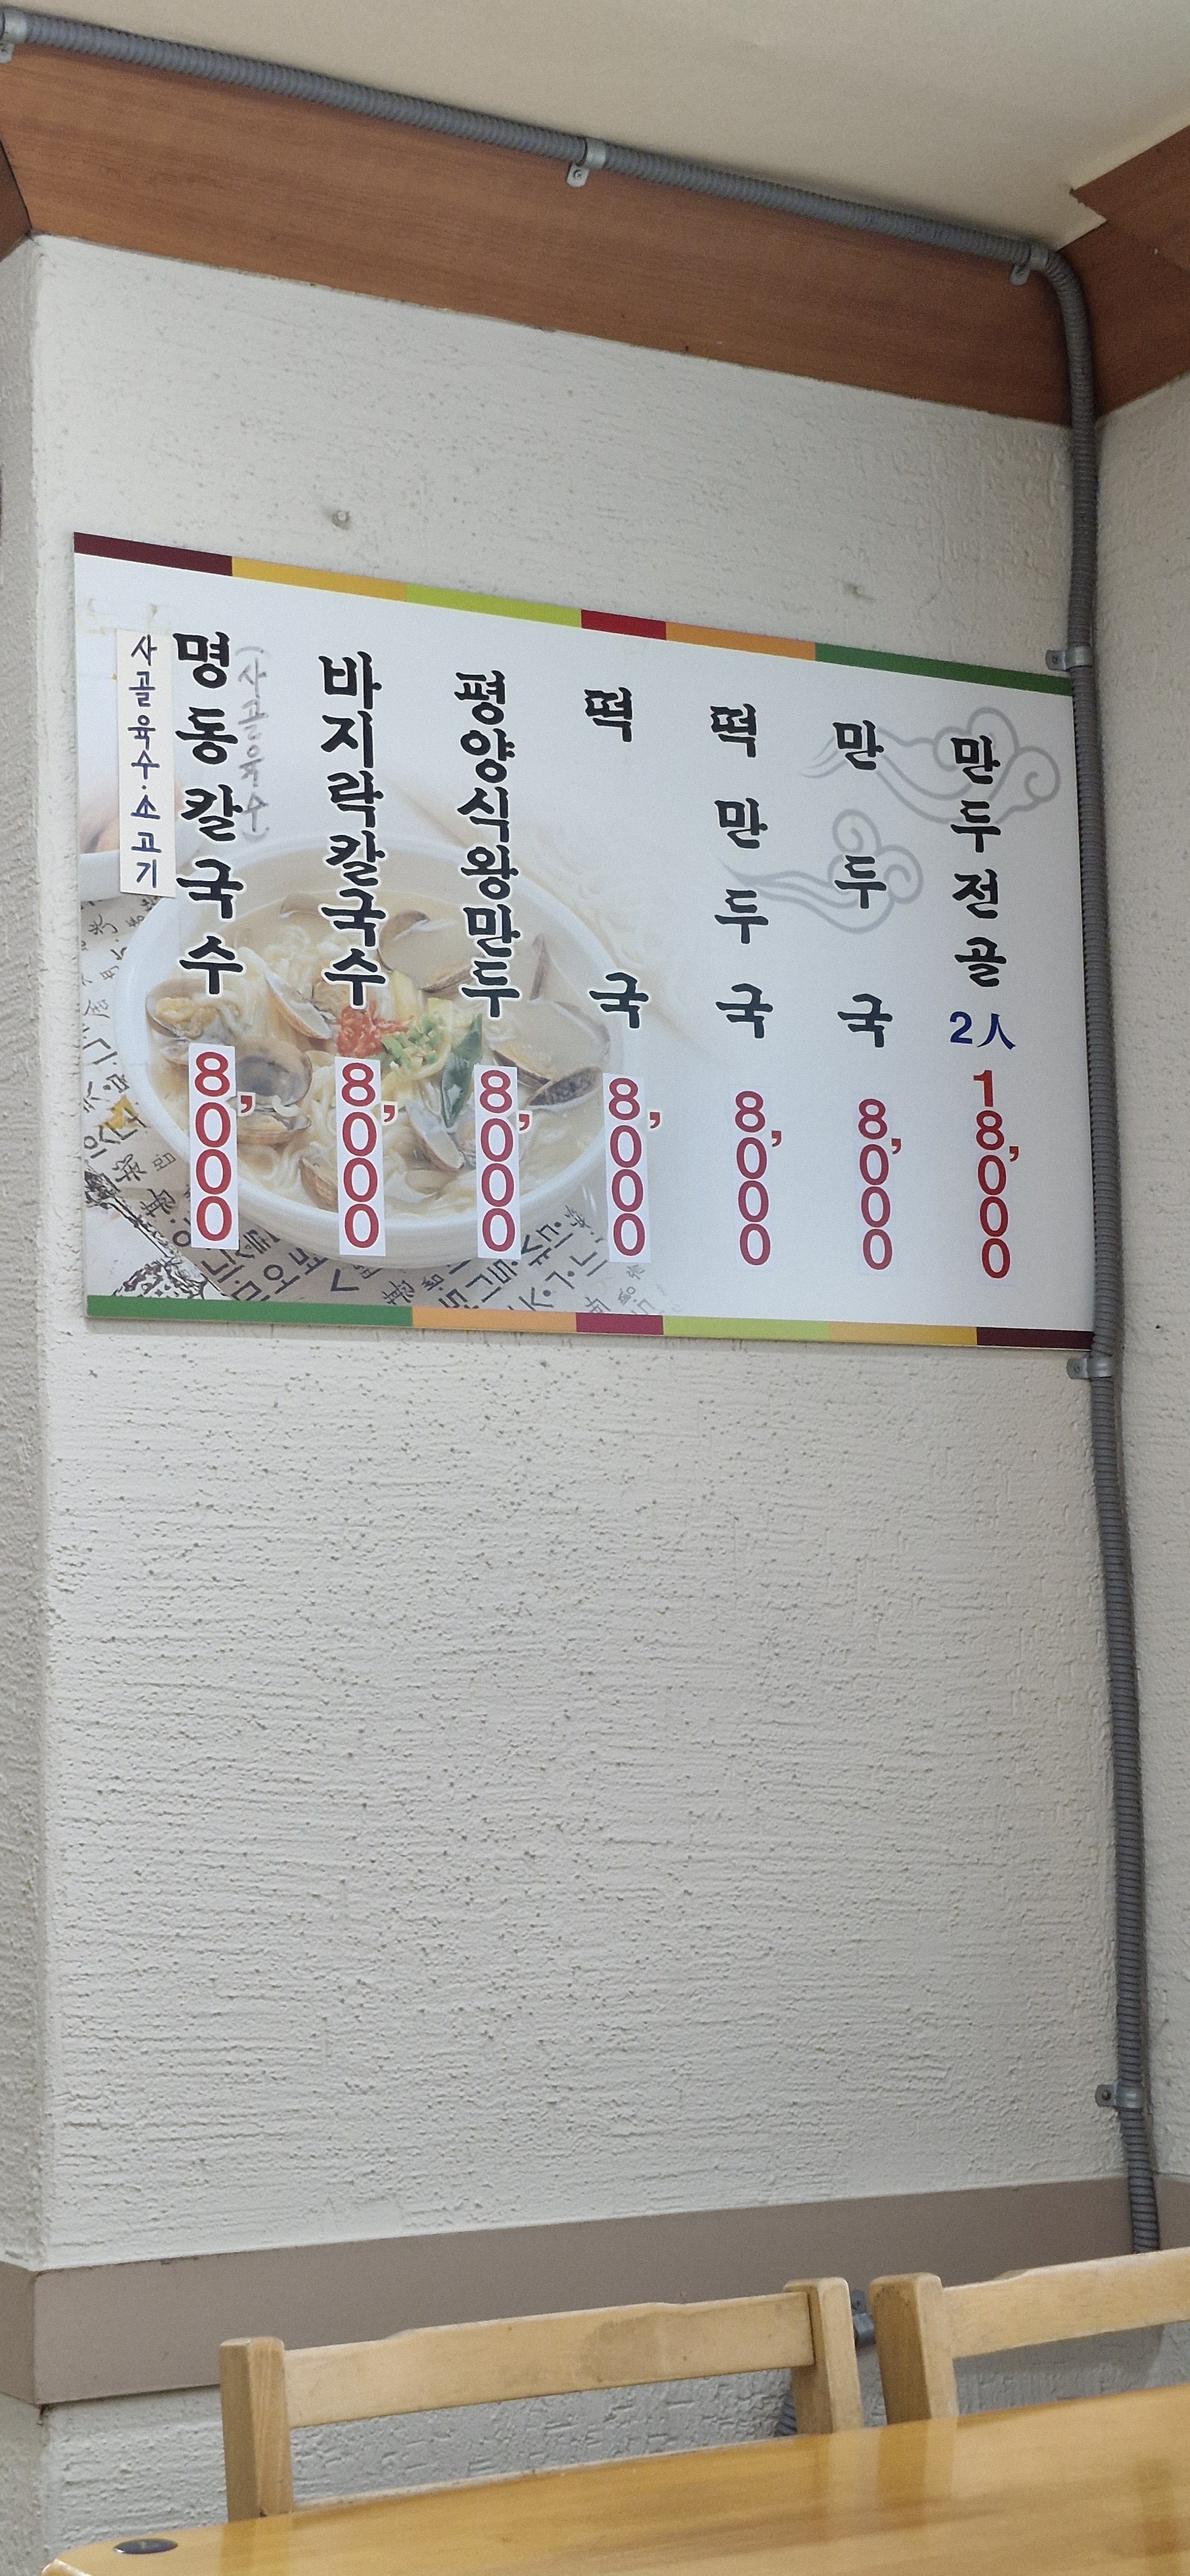 사골육수·소고기
명동칼국수
(사골육수)
8,000
바지락칼국수
8,000
평양식왕만두
8,000
떡국
8,000
떡만두국
8,000
만두국
8,000
만두전골
2人
18,000